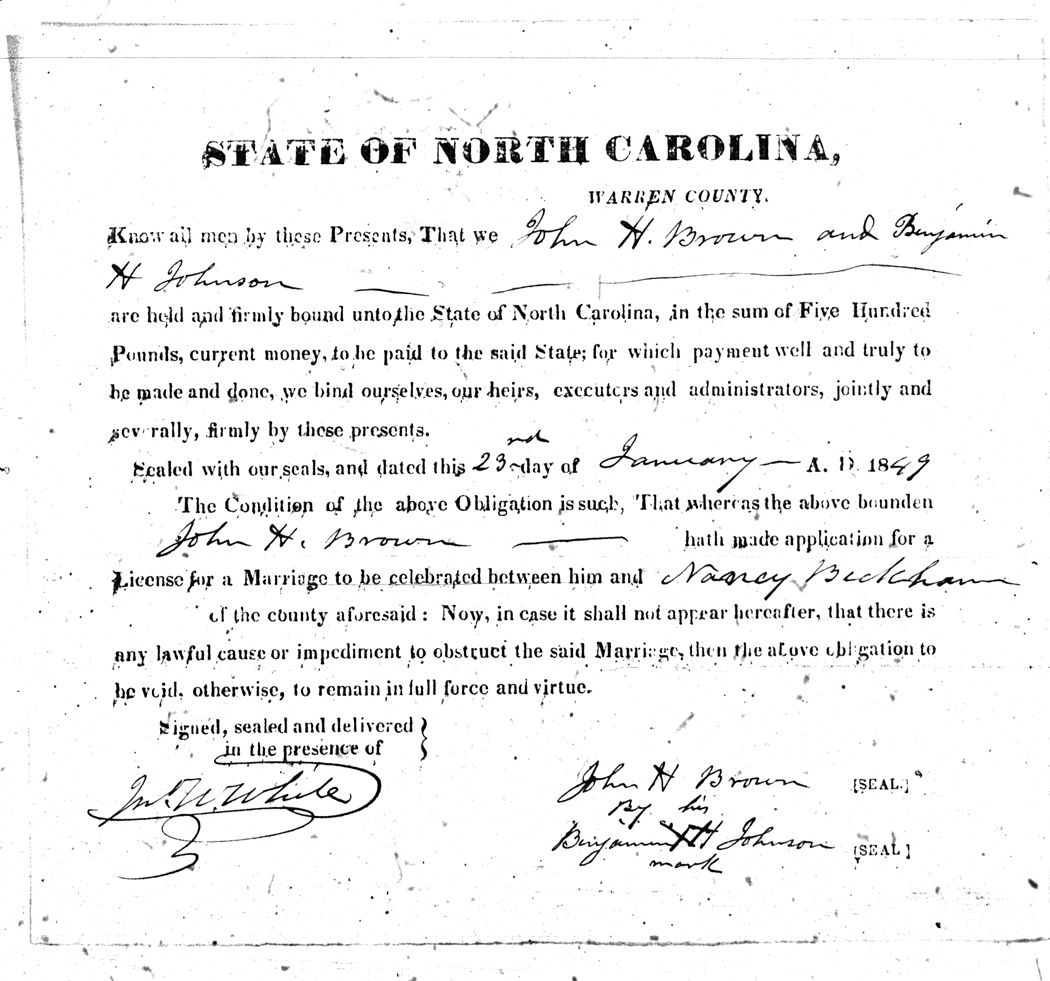 STATE OF NORTH CAROLINA,
WARREN COUNTY.
Know all men by these Presents, That we John H. Brown and Benjamin
H Johnson
are held and firmly bound unto the State of North Carolina, in the sum of Five Hundred
Pounds, current money, to be paid to the said State; for which payment well and truly to
be made and done, we bind ourselves, our heirs, executors and administrators, jointly and
severally, firmly by these presents.
Sealed with our seals, and dated this 23rd day of January A. D. 1849
The Condition of the above Obligation is such, That whereas the above bounden
John H. Brown hath made application for a
License for a Marriage to be celebrated between him and Nancy Beckham
of the county aforesaid: Now, in case it shall not appear hereafter, that there is
any lawful cause or impediment to obstruct the said Marriage, then the above obligation to
be void, otherwise, to remain in full force and virtue.
Signed, sealed and delivered
in the presence of
Jno. W. White
John H Brown [SEAL.]
By his
Benjamin X H Johnson [SEAL]
mark